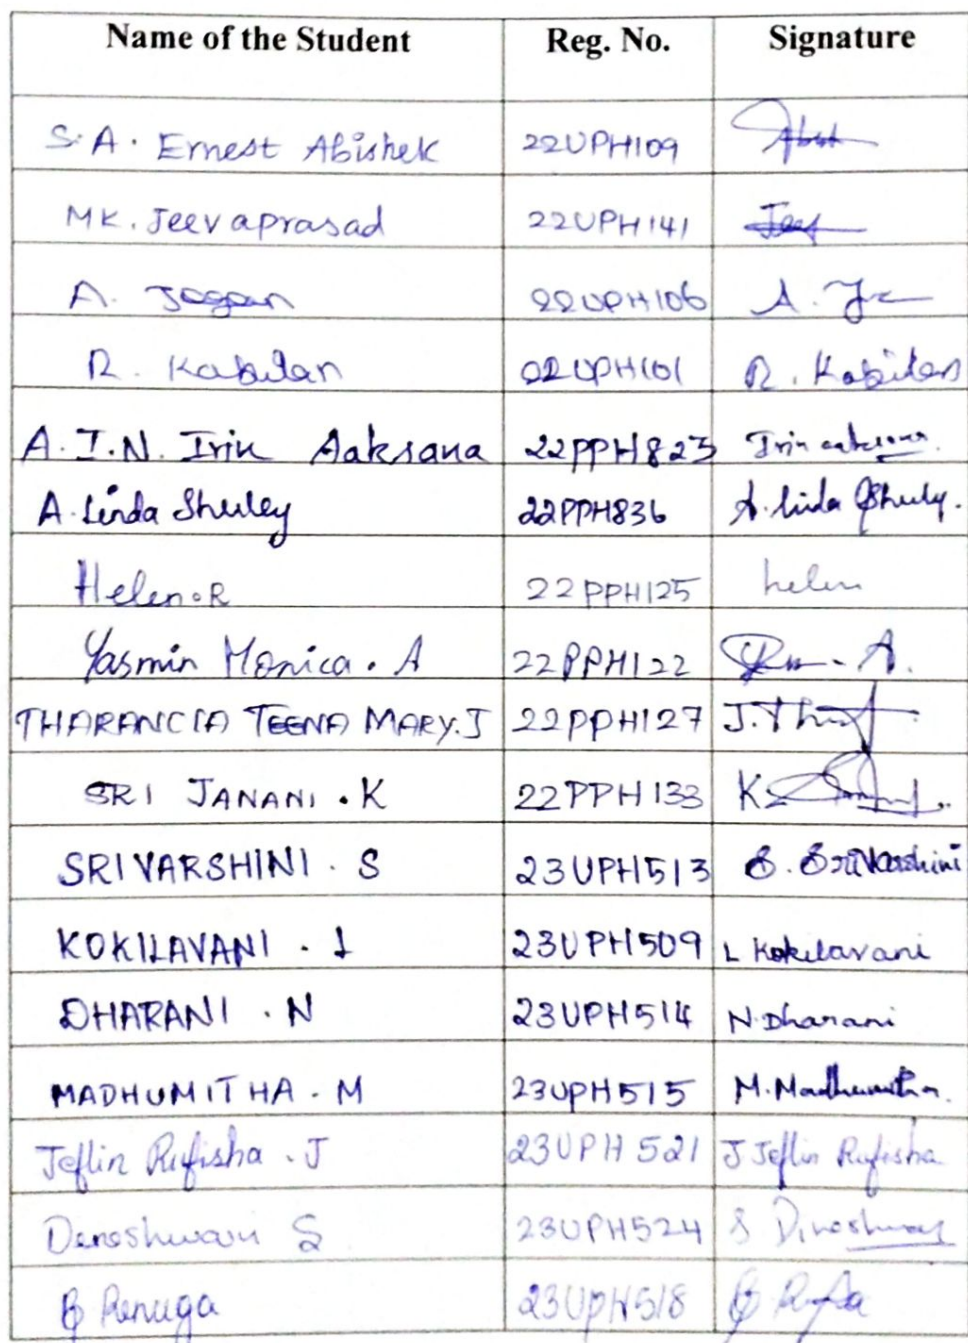 Name of the Student Reg. No. Signature
S.A. Ernest Abishek 22UPH109
MK. Jeevaprasad 22UPH141 Jeev
A. Jagan 22UPH106 A. Ja
R. Kabilan 22UPH101 R. Kabilan
A.J.N. Irin Aaksana 22PPH823 Irin aaksana
A. Linda Sherley 22PPH836 A. Linda Sherly.
Helen.R 22PPH125 helen
Yasmin Monica. A 22PPH122 A.
THARANCIA TEENA MARY.J 22PPH127 J.Th
SRI JANANI . K 22PPH133 K
SRIVARSHINI . S 23UPH513 S. Srivarshini
KOKILAVANI . L 23UPH509 L Kokilavani
DHARANI . N 23UPH514 N.Dharani
MADHUMITHA . M 23UPH515 M.Madhumitha.
Jeflin Rufisha . J 23UPH521 J Jeflin Rufisha
Deneshwari S 23UPH524 S Dineshwari
B Renuga 23UPH518 B